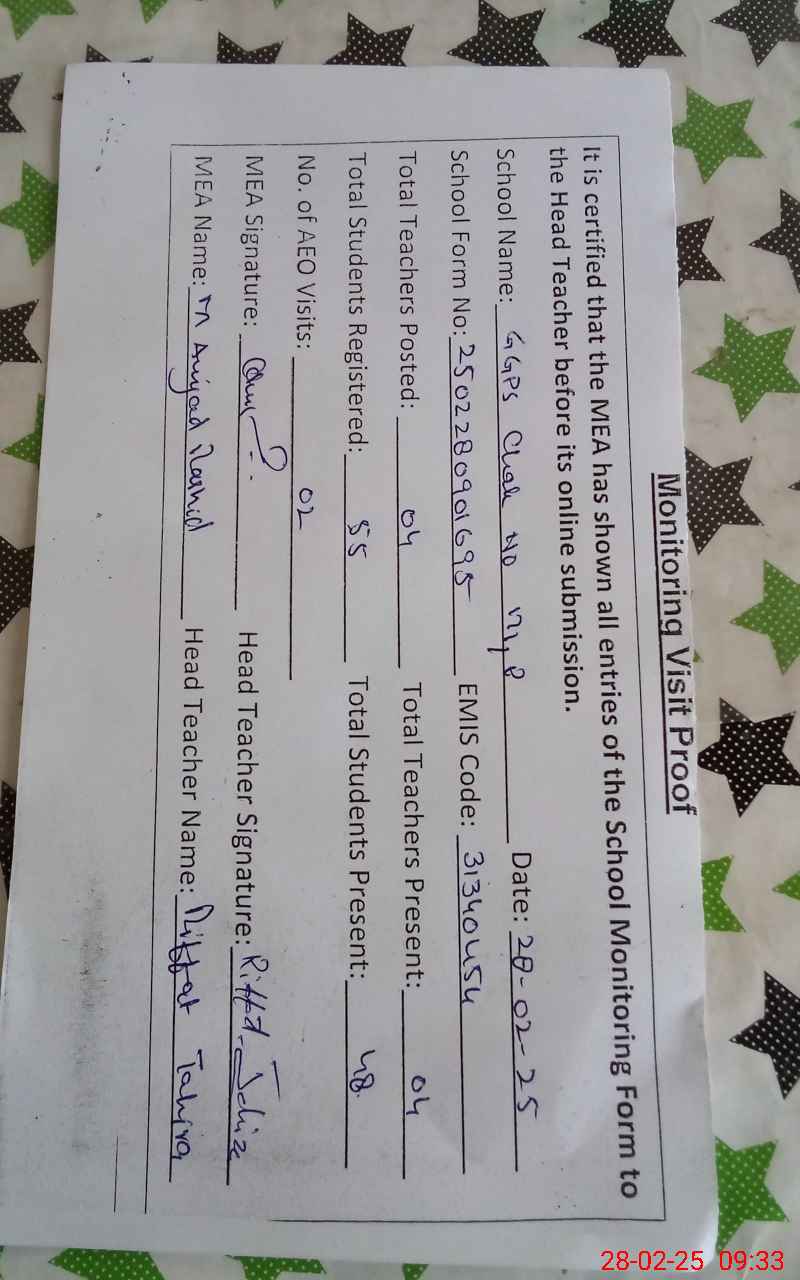 Monitoring Visit Proof
It is certified that the MEA has shown all entries of the School Monitoring Form to
the Head Teacher before its online submission.
School Name: GGPS Chak No Date: 28-02-25
School Form No: 2502280901695 EMIS Code: 31340454
Total Teachers Posted: 04 Total Teachers Present: 04
Total Students Registered: 55 Total Students Present: 48
No. of AEO Visits: 02
MEA Signature: Head Teacher Signature:
MEA Name: M Amjad Rashid Head Teacher Name: Riffat Tahira
28-02-25 09:33